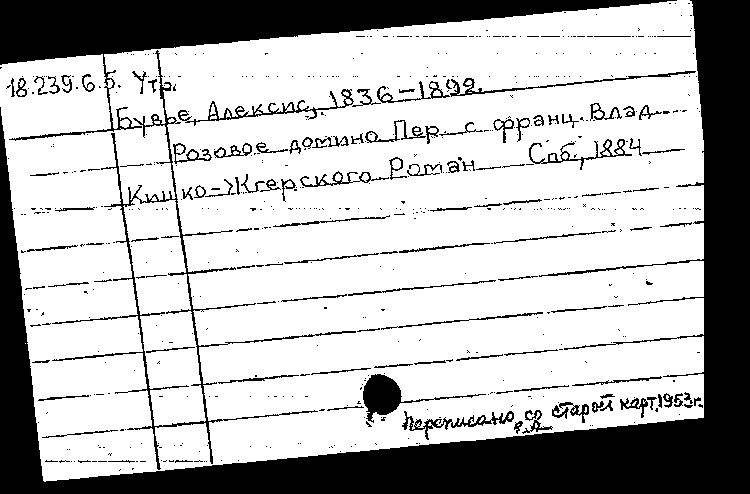 18.239.6.5. Утр.
Бувье, Алексис, 1836-1892.
Розовое домино Пер. с франц. Влад.
Кишко-Жгерского. Роман Спб., 1884
Переписано со старой карт. 1953 г.